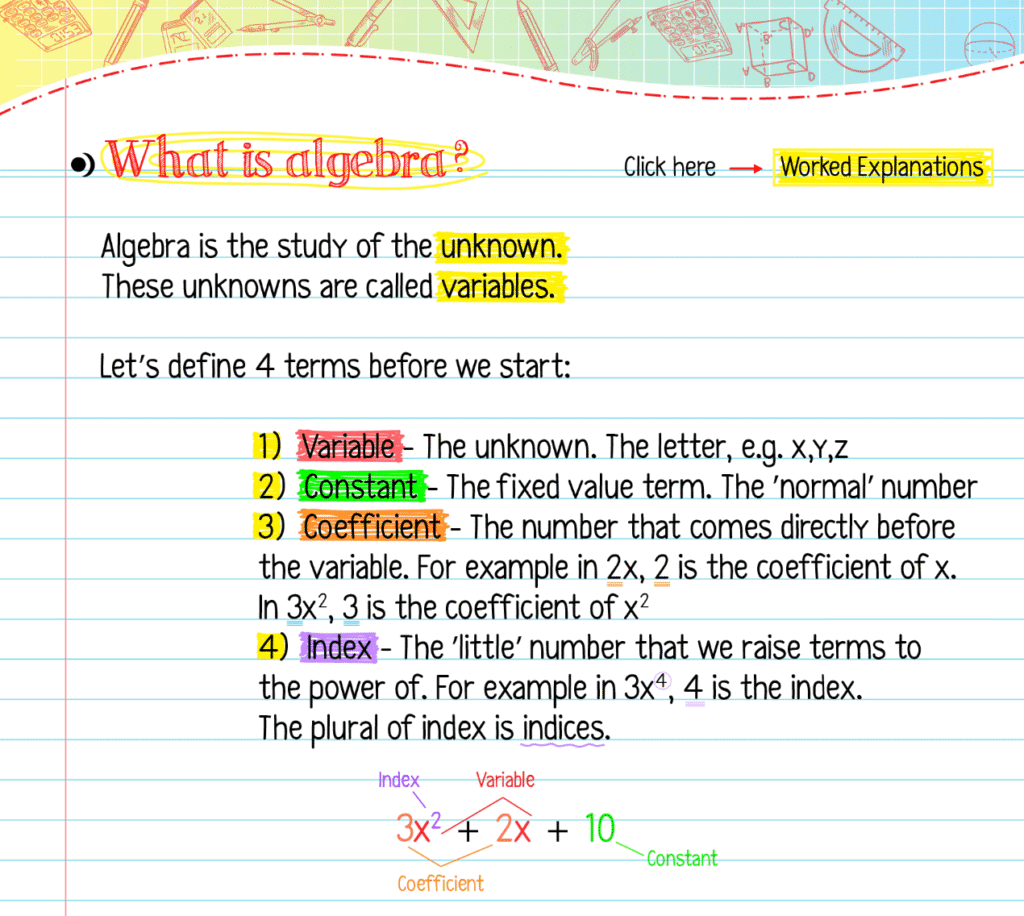 What is algebra?
Click here → Worked Explanations
Algebra is the study of the unknown.
These unknowns are called variables.
Let's define 4 terms before we start:
1) Variable - The unknown. The letter, e.g. x,y,z
2) Constant - The fixed value term. The 'normal' number
3) Coefficient - The number that comes directly before
the variable. For example in 2x, 2 is the coefficient of x.
In 3x², 3 is the coefficient of x²
4) Index - The 'little' number that we raise terms to
the power of. For example in 3x⁴, 4 is the index.
The plural of index is indices.
Index Variable
3x² + 2x + 10
Constant
Coefficient